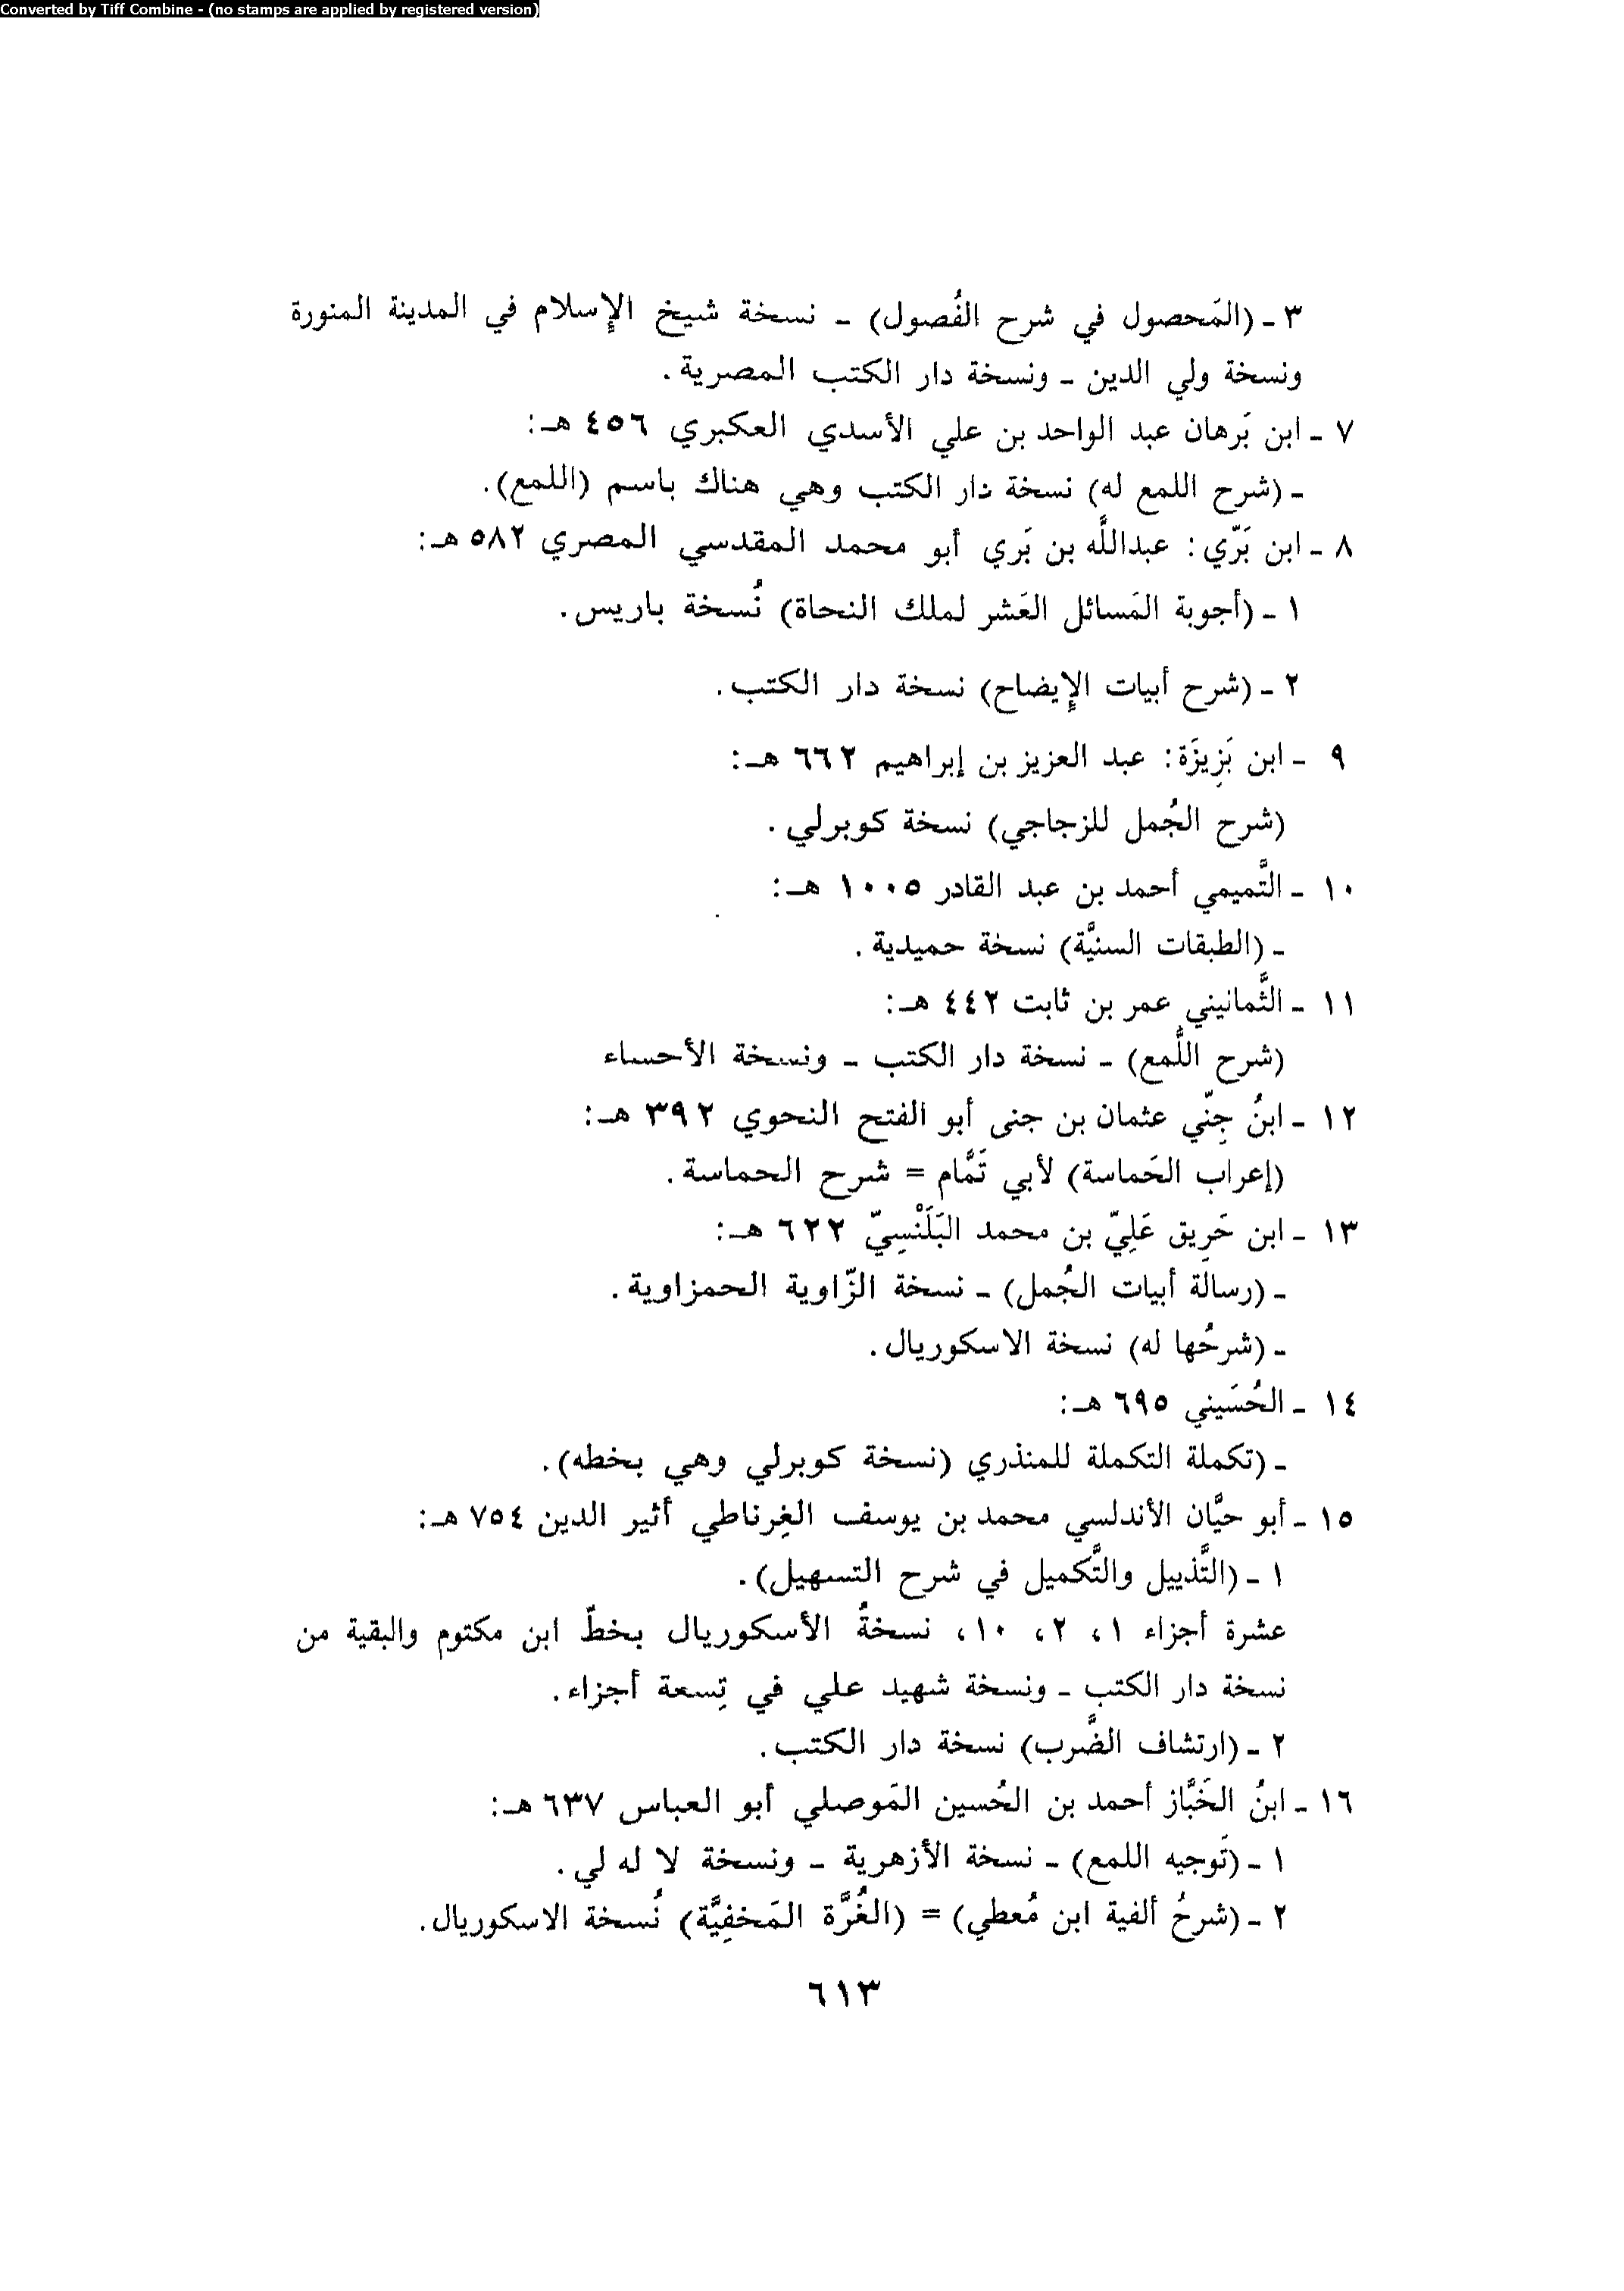 Converted by Tiff Combine - (no stamps are applied by registered version)
٣ - (المَحصول في شرح الفُصول) - نسخة شيخ الإِسلام في المدينة المنورة
ونسخة ولي الدين - ونسخة دار الكتب المصرية.
٧ - ابن بَرهان عبد الواحد بن علي الأسدي العكبري ٤٥٦ هـ:
- (شرح اللمع له) نسخة دار الكتب وهي هناك باسم (اللمع).
٨ - ابن بَرّي: عبداللَّه بن بَري أبو محمد المقدسي المصري ٥٨٢ هـ:
١ - (أجوبة المَسائل العَشر لملك النحاة) نُسخة باريس.
٢ - (شرح أبيات الإِيضاح) نسخة دار الكتب.
٩ - ابن بَزِيزَة: عبد العزيز بن إبراهيم ٦٦٢ هـ:
(شرح الجُمل للزجاجي) نسخة كوبرلي.
١٠ - التَّميمي أحمد بن عبد القادر ١٠٠٥ هـ:
- (الطبقات السنيَّة) نسخة حميدية.
١١ - الثَّمانيني عمر بن ثابت ٤٤٢ هـ:
(شرح اللُّمع) - نسخة دار الكتب - ونسخة الأحساء
١٢ - ابنُ جِنّي عثمان بن جنى أبو الفتح النحوي ٣٩٢ هـ:
(إعراب الحَماسة) لأبي تَمَّام = شرح الحماسة.
١٣ - ابن حَرِيق عَلِيّ بن محمد البَلَنْسِيّ ٦٢٢ هـ:
- (رسالة أبيات الجُمل) - نسخة الزّاوية الحمزاوية.
- (شرحُها له) نسخة الاسكوريال.
١٤ - الحُسَيني ٦٩٥ هـ:
- (تكملة التكملة للمنذري (نسخة كوبرلي وهي بخطه).
١٥ - أبو حيَّان الأندلسي محمد بن يوسف الغِرناطي أثير الدين ٧٥٤ هـ:
١ - (التَّذييل والتَّكميل في شرح التسهيل).
عشرة أجزاء ١، ٢، ١٠، نسخةُ الأسكوريال بخطّ ابن مكتوم والبقية من
نسخة دار الكتب - ونسخة شهيد علي في تِسعة أجزاء.
٢ - (ارتشاف الضَّرب) نسخة دار الكتب.
١٦ - ابنُ الخَبَّاز أحمد بن الحُسين المَوصلي أبو العباس ٦٣٧ هـ:
١ - (تَوجيه اللمع) - نسخة الأزهرية - ونسخة لا له لي.
٢ - (شرحُ ألفية ابن مُعطي) = (الغُرَّة المَخفِيَّة) نُسخة الاسكوريال.
٦١٣